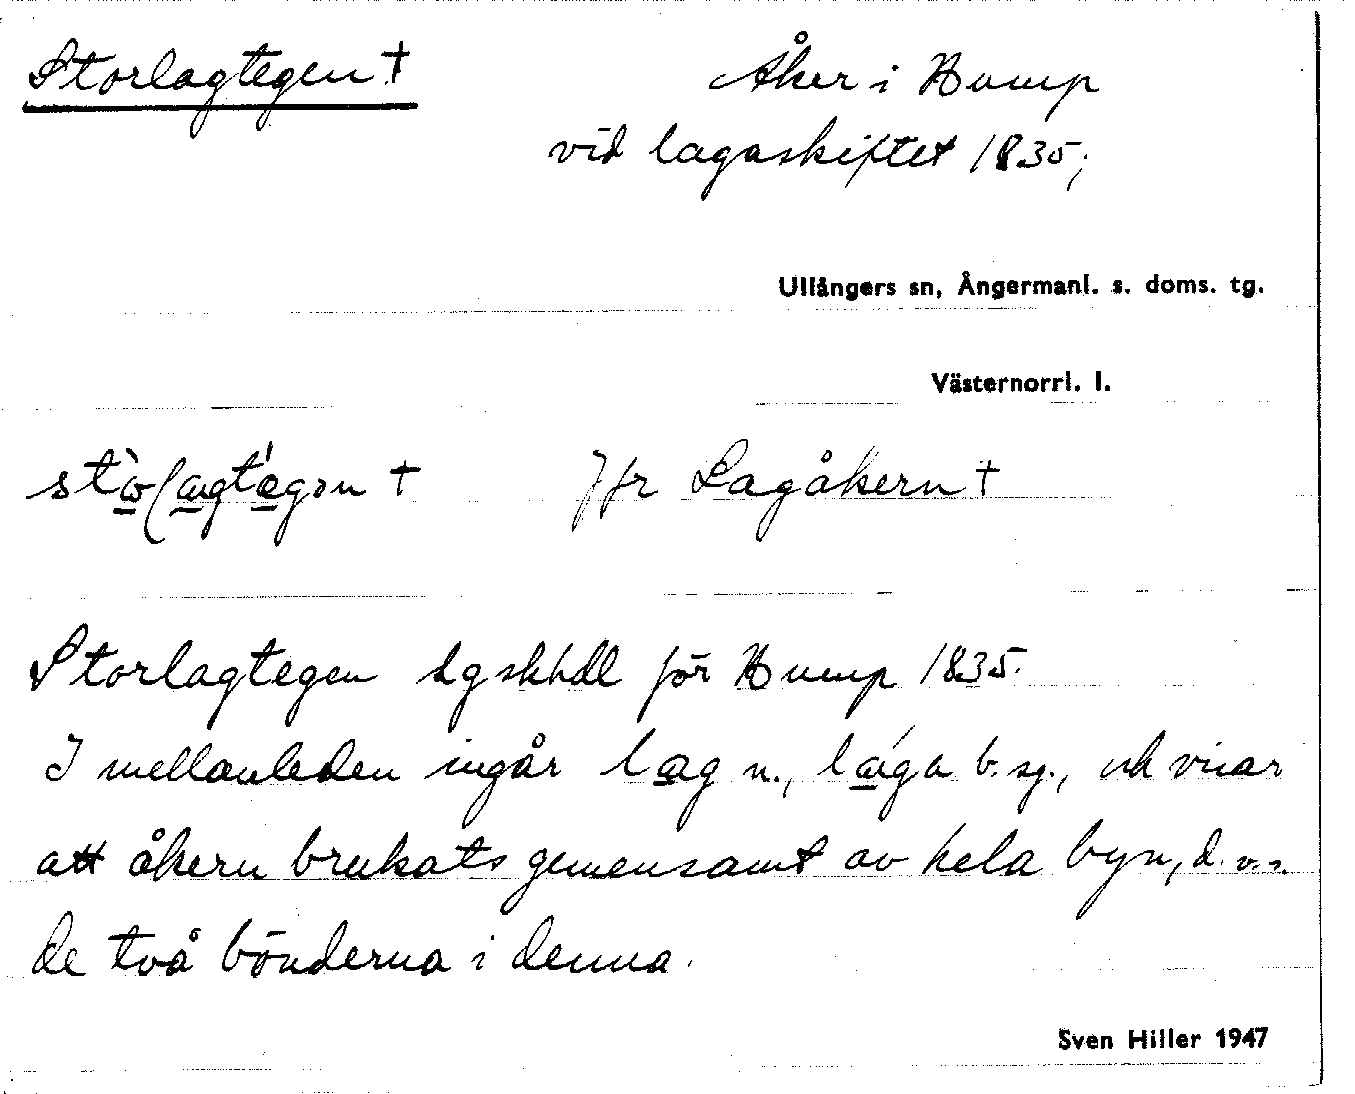 Storlagtegen †
Åker i Bump
vid lagaskiftet 1835;
Ullångers sn, Ångermanl. s. doms. tg.
Västernorrl. l.
† Jfr Lagåkern †
Storlagtegen lgskhdl för Bump 1835.
I mellanleden ingår lag n., lága b. sg., och visar
att åkern brukats gemensamt av hela byn, d. v. s.
de två bönderna i denna.
Sven Hiller 1947